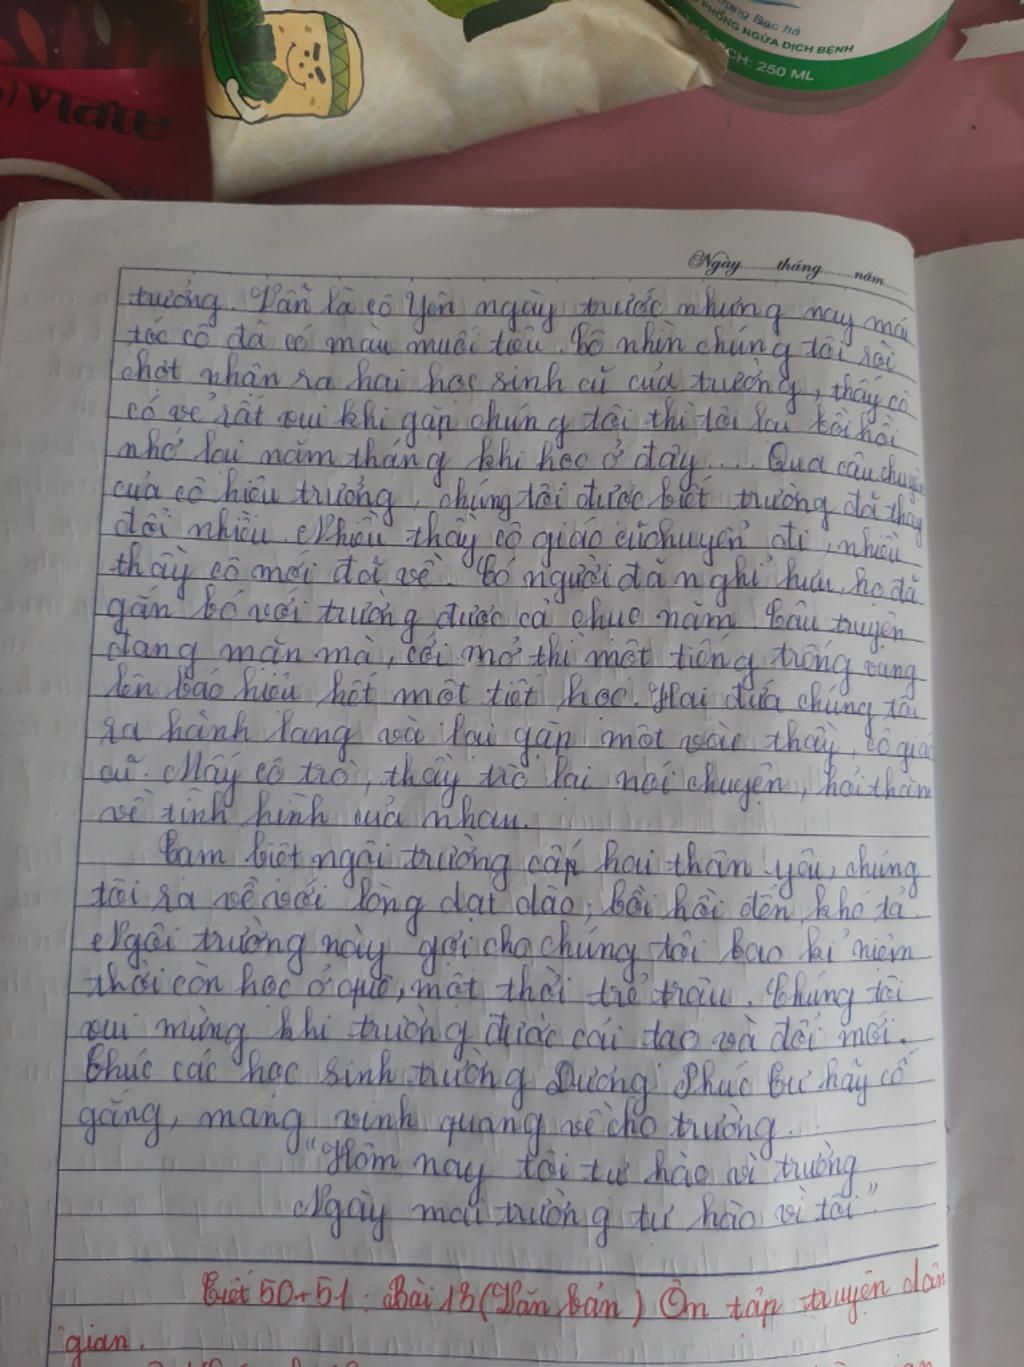 ợng Bạc hà
PHÒNG NGỪA DỊCH BỆNH
CH: 250 ML
Ngày.........tháng.........năm.......
trưởng. Vẫn là cô Yên ngày trước nhưng nay mái
tóc cô đã có màu muối tiêu. Cô nhìn chúng tôi rồi
chợt nhận ra hai học sinh cũ của trường, thấy cô
có vẻ rất vui khi gặp chúng tôi thì tôi lại bồi hồi
nhớ lại năm tháng khi học ở đây.... Qua câu chuyện
của cô hiệu trưởng, chúng tôi được biết trường đã thay
đổi nhiều. Nhiều thầy cô giáo cũ chuyển đi, nhiều
thầy cô mới đã về. Có người đã nghỉ hưu, họ đã
gắn bó với trường được cả chục năm. Câu truyện
đang mặn mà, cởi mở thì một tiếng trống vang
lên báo hiệu hết một tiết học. Hai đứa chúng tôi
ra hành lang và lại gặp một vài thầy, cô giáo
cũ. Mấy cô trò, thầy trò lại nói chuyện, hỏi thăm
về tình hình của nhau.
Tạm biệt ngôi trường cấp hai thân yêu, chúng
tôi ra về với lòng dạt dào, bồi hồi đến khó tả.
Ngôi trường này gợi cho chúng tôi bao kỉ niệm
thời còn học ở quê, một thời trẻ trâu. Chúng tôi
vui mừng khi trường được cải tạo và đổi mới.
Chúc các học sinh trường Dương Phúc Tư hãy cố
gắng, mang vinh quang về cho trường.
"Hôm nay tôi tự hào vì trường
Ngày mai trường tự hào vì tôi"
Tiết 50+51: Bài 13 (Văn bản) Ôn tập truyện dân
gian.